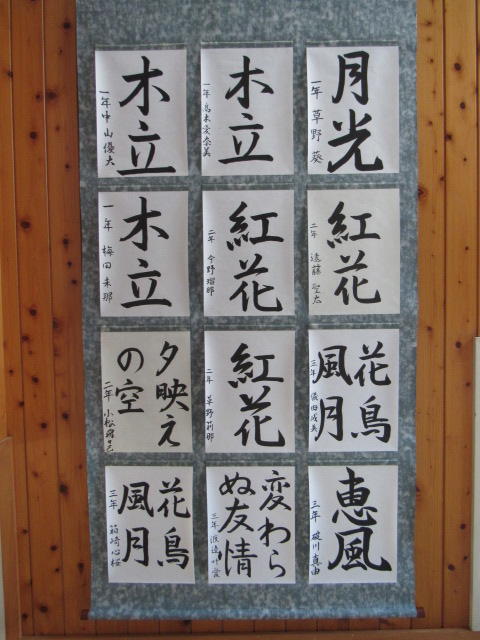 月光
一年 草野 葵
木立
一年
木立
一年 中山優大
紅花
二年 遠藤
紅花
二年 今野瑠那
木立
一年 梅田未那
花鳥
風月
三年
紅花
二年 草野莉那
夕映え
の空
二年 小松
恵風
三年 砂川真由
変わら
ぬ友情
三年 渡邉
花鳥
風月
三年 箱崎心桜